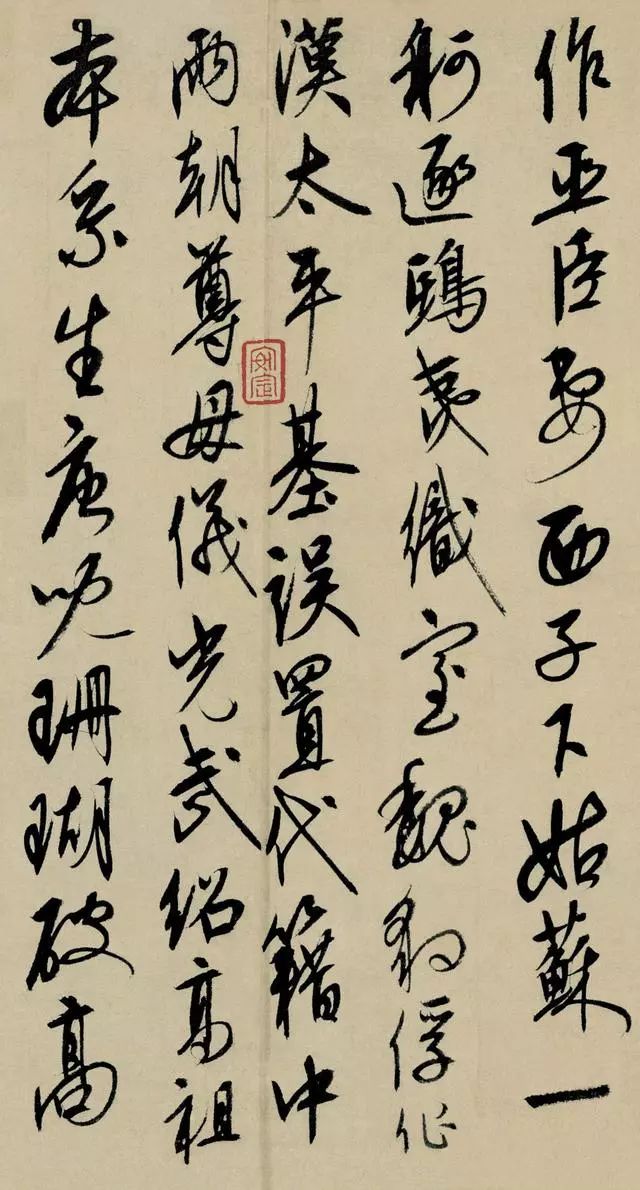 作巫臣妻西子下姑蘇一
舸逐鴟夷織室魏豹俘作
漢太平基誤置代籍中
兩朝尊母儀光武紹高祖
本系生唐兒珊瑚破高
安定